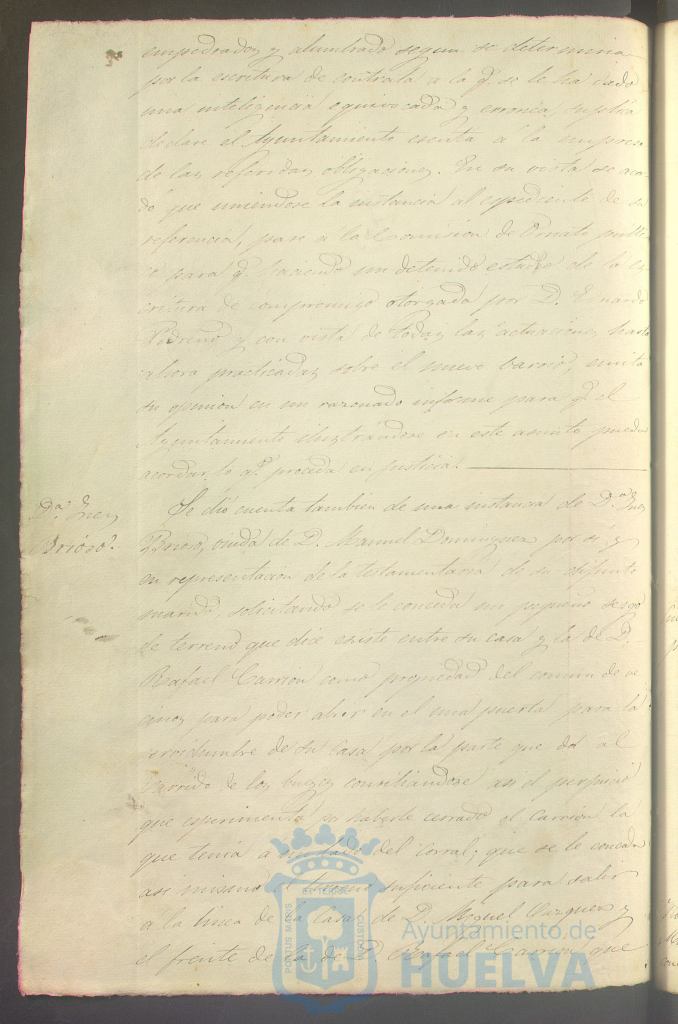 empedrados y alumbrado segun se determina
por la escritura de contrata a la q.e se le ha dado
una inteligencia equivocada y erronea, suplica
declare el Ayuntamiento esenta a la empresa
de las referidas obligaciones. En su vista se acor-
dó que uniendose la instancia al espediente de su
referencia, pase á la Comision de Ornato publi-
co para q.e haciendo un detenido estudio de la es-
critura de compromiso otorgada por D.
y con vista de todas las actuaciones hasta
ahora practicadas sobre el nuevo barrio, emita
su opinion en un razonado informe para q.e el
Ayuntamiento ilustrandose en este asunto pueda
acordar lo q.e proceda en justicia.
D.a Ines
Se dió cuenta tambien de una instancia de D.a Ines
viuda de D. Manuel Dominguez por sí y
en representacion de la testamentaria de su difunto
marido solicitando se le conceda un pequeño sesgo
de terreno que dice existe entre su casa y la de D.
Rafael Carrion como propiedad del comun de ve
cinos para poder abrir en el una puerta para la
servidumbre de su casa por la parte que da al
de los conciliandose asi el perjuicio
que esperimenta por haberle cerrado el Carrion la
que tenia a un lado del corral; que se le conceda
asi mismo el terreno suficiente para salir
á la linea de la casa de D. Miguel Vazquez y
el frente de la de D. Rafael Carrion que
PORTUS MARIS
ET TERRE
CUSTODIA
Ayuntamiento de
HUELVA